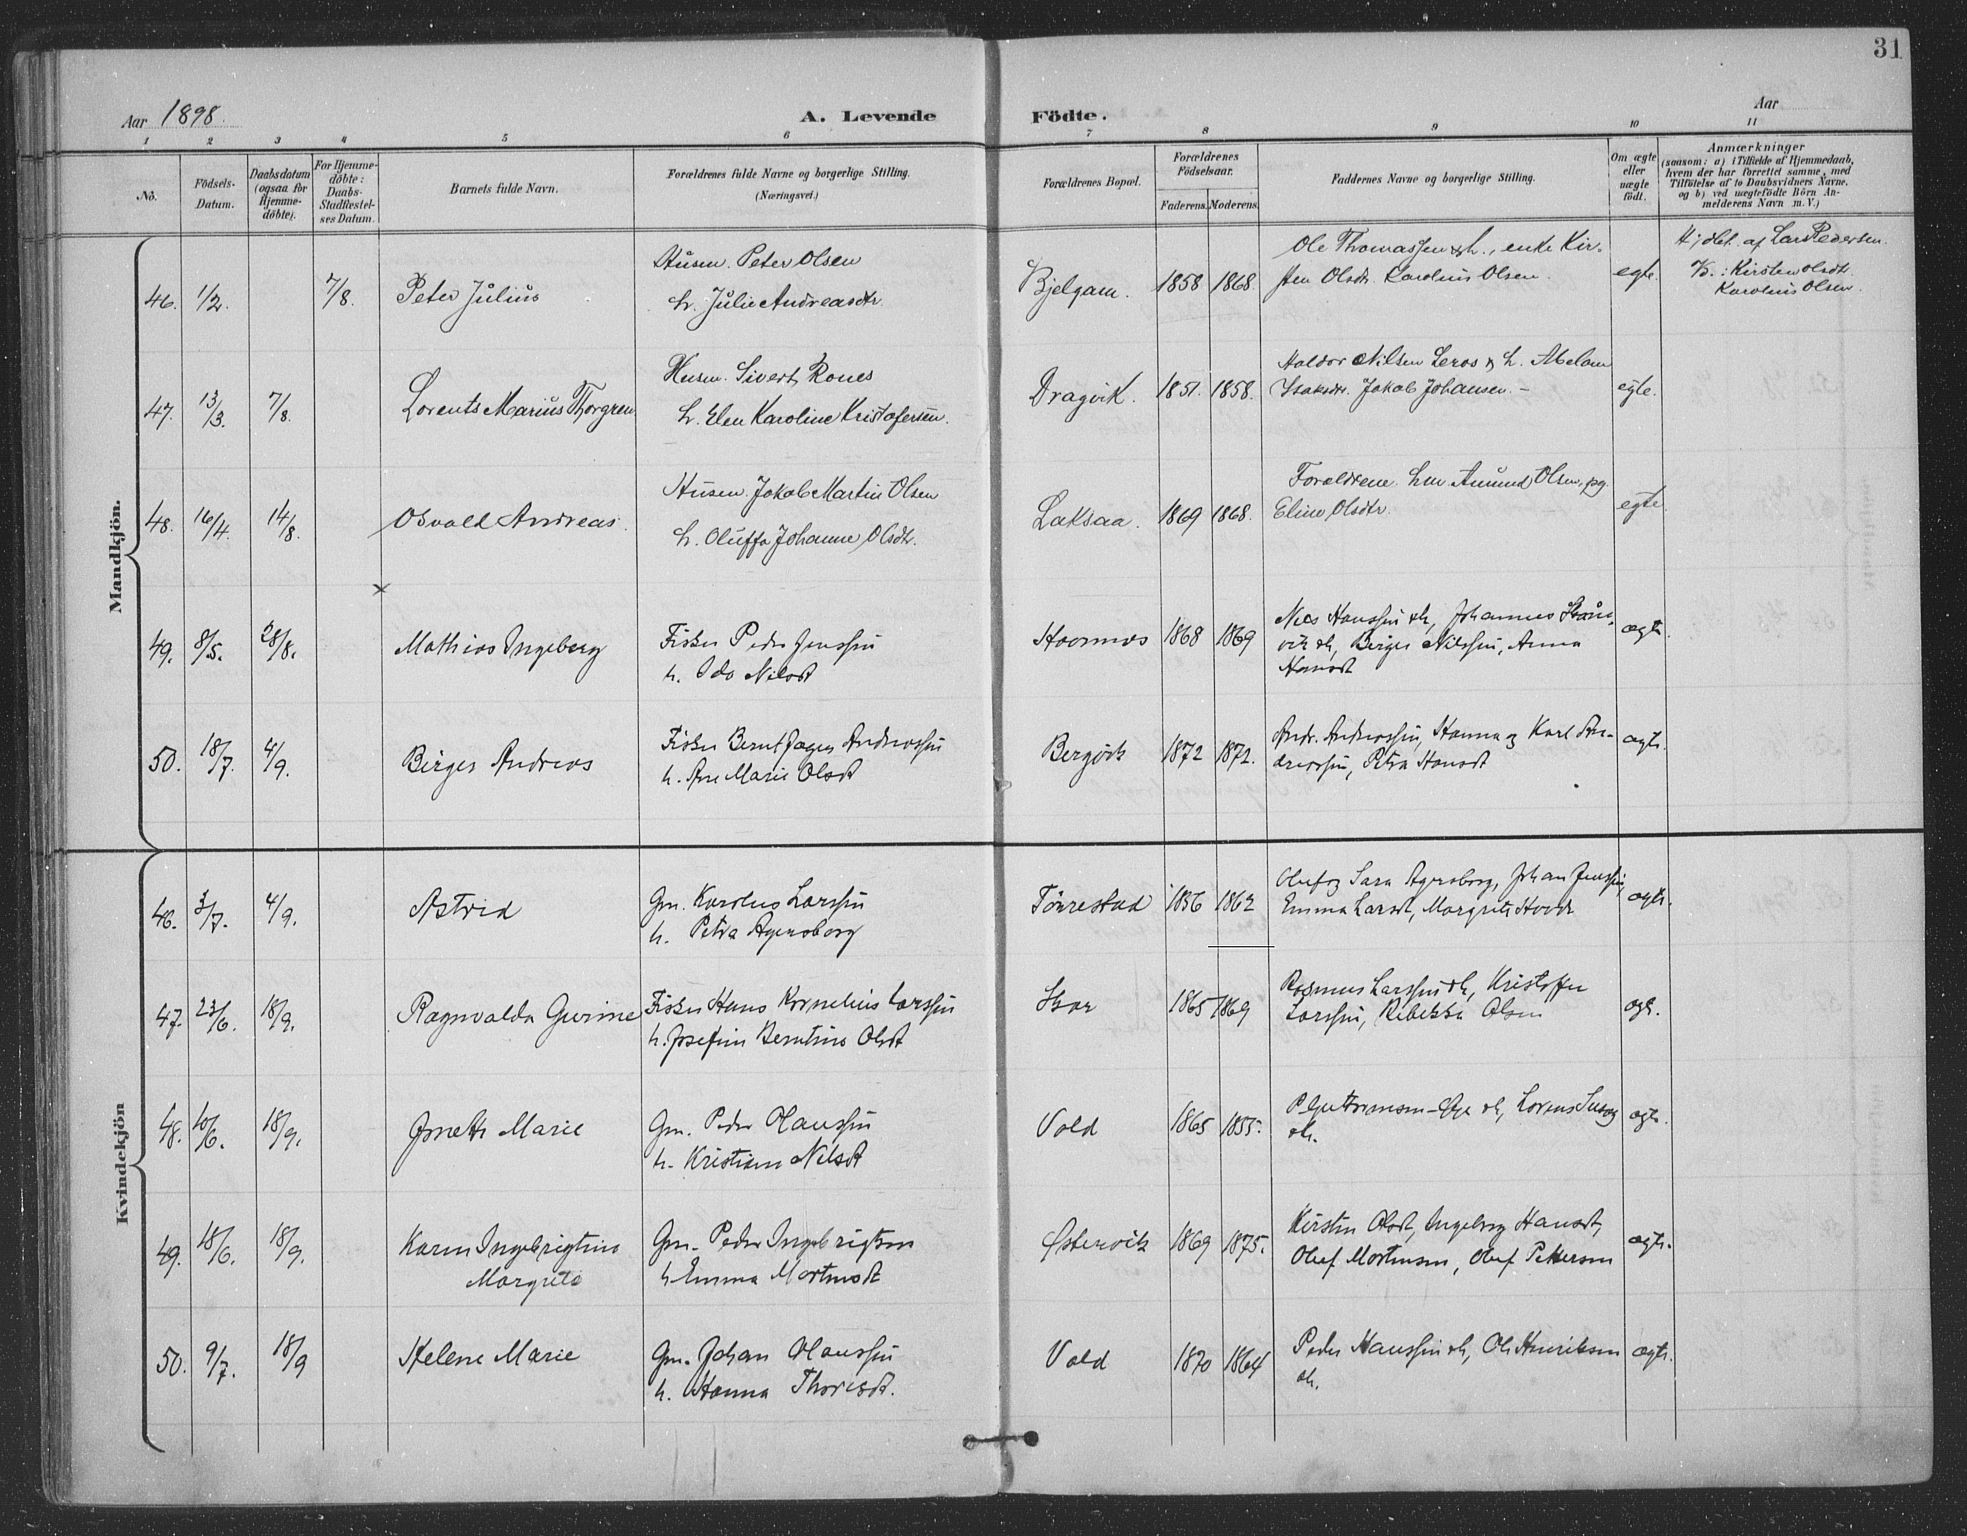 31
Aar 1898.
A. Levende Födte.
Aar
1 2 3 4 5 6 7 8 9 10 11
No.
Födsels-Datum.
Daabsdatum (ogsaa for Hjemme-döbte).
For Hjemme-döbte: Daabs-Stadfæstel-ses Datum.
Barnets fulde Navn.
Forældrenes fulde Navne og borgerlige Stilling.
(Næringsvei.)
Forældrenes Bopæl.
Forældrenes Födselsaar.
Faderens. Moderens.
Faddernes Navne og borgerlige Stilling.
Om ægte eller uægte födt.
Anmærkninger
(saasom: a) i Tilfælde af Hjemmedaab,
hvem der har forrettet samme, med
Tilföielse af to Daabsvidners Navne,
og b) ved uægtefödte Börn An-
melderens Navn m. V.)
Mandkjön.
46. 1/2. 7/8. Peter Julius Husm. Peter Olsen
h. Julie Andreasdtr.
Bjelgam. 1858 1868. Ole Thomassen & h., enke Kir-
sten Olsdtr. Karolius Olsen. egte.
Hjdbt. af Lars Pedersen.
V.: Kirsten Olsdtr.
Karolius Olsen.
47. 13/3. 7/8. Lorents Marius Thorgren Husm. Sivert Rones
h. Elen Karoline Kristofersen.
Dragvik. 1851. 1858. Haldor Nilsen Leros & h. Abelone
Isaksdtr. Jakob Johansen. – egte.
48. 16/4. 14/8. Osvald Andreas. Husm. Jakob Martin Olsen
h. Oluffa Johanne Olsdtr.
Laksaa. 1869 1868. Forældrene. Amund Olsen, pg.
Eline Olsdtr. egte.
x
49. 8/5. 28/8. Mathias Ingeberg Fisker Peder Jenssen
h. Ida Nilsdt
1868 1869 Nils Hanssen & h., Johannes
& h., Birger Nilssen, Anna
Hansdt ægte
50. 18/7. 4/9. Birger Andreas Fisker Bernt Andreassen
h. Ane Marie Olsdt
Bergvik 1872 1872. Andr. Andreassen, Hanna og Karl An-
dreassen, Petra Hansdt ægte.
Kvindekjön
46. 3/7. 4/9. Astrid Gm. Karolus Larssen
h. Petra Agersborg
Tørrestad 1856 1862 Oluf og Sara Agersborg, Johan Jenssen,
Emma Larsdt, Margrete ægte.
47. 23/6. 18/9. Ragnvalda Gurine Fisker Hans Kornelius Larssen
h. Josefine Berntine Olsdt
Skar 1865 1869 Rasmus Larssen & h., Kristoffer
Larssen, Rebekka Olsen ægt.
48. 10/6. 18/9. Jonette Marie Gm. Peder Hanssen
h. Kristiane Nilsdt
Vold 1865 1855. & h., Lorens
& h. ægte.
49. 18/6. 18/9. Karen Ingebrigtine
Margrete Gm. Peder Ingebrigtsen
h. Emma Mortensdt
Østervik 1869 1875. Kirsten Olsdt, Ingeborg Hansdt,
Oluf Mortensen, Oluf Pettersen ægte.
50. 9/7. 18/9 Helene Marie Gm. Johan Hanssen
h. Hanna Thorisdt.
Vold 1870 1864 Peder Hanssen & h., Ole Henriksen
& h. ægte.